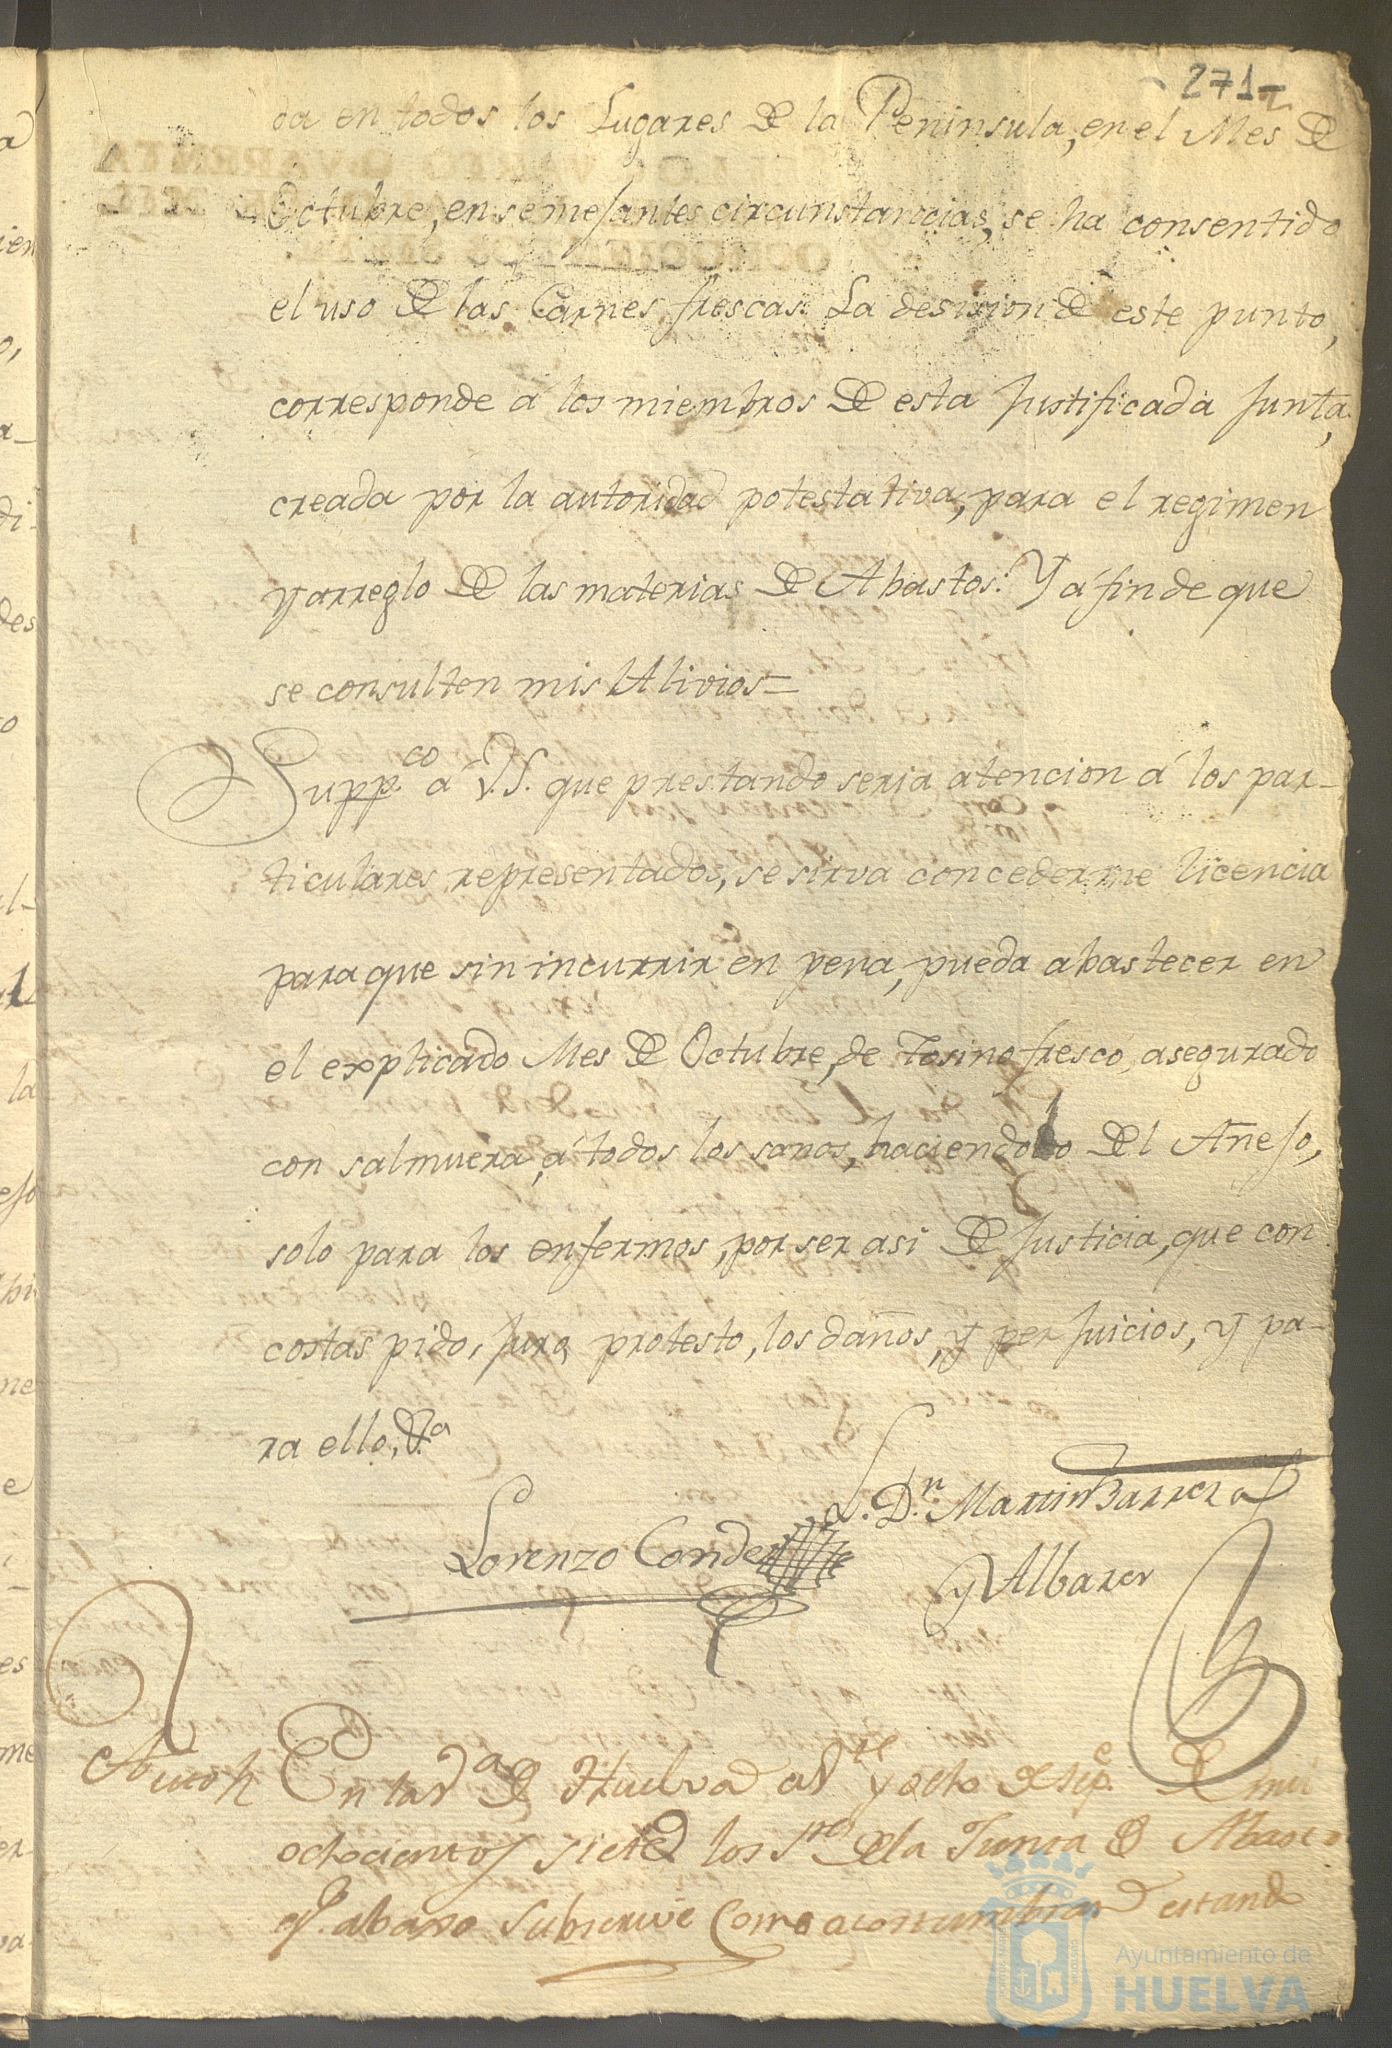 271
da en todos los Lugares de la Peninsula, en el Mes de
Octubre, en semejantes circunstancias, se ha consentido
el uso de las Carnes frescas. La desision de este punto,
corresponde á los miembros de esta Justificada Junta,
creada por la autoridad potestativa, para el regimen
y arreglo de las materias de Abastos: Y á fin de que
se consulten mis Alivios=
Supp.co á V.S. que prestando seria atencion á los par-
ticulares representados, se sirva concederme licencia
para que sin incurrir en pena, pueda abastecer en
el explicado Mes de Octubre, de Tosino fresco, asegurado
con salmuera, á todos los sanos, haciendolo del Añejo,
solo para los enfermos, por ser asi de Justicia, que con
costas pido, juro, protesto, los daños, y perjuicios, y pa-
ra ello, &.a
L. D.n Martin Barrera
Lorenzo Conde
y Albarer
Auto En la V.a de Huelva a V.te y ocho de Sep.e de mil
ochocientos siete los S.res de la Junta de Abasto
q.e abaxo subscrive como acostumbran estando
Ayuntamiento de
HUELVA